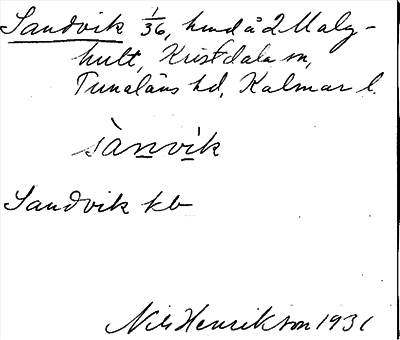 Sandvik 1/36, hmd å 2 Malg-
hult, Kristdala sn,
Tunaläns hd, Kalmar l.
sànvik
Sandvik kb
Nils Henrikson 1931